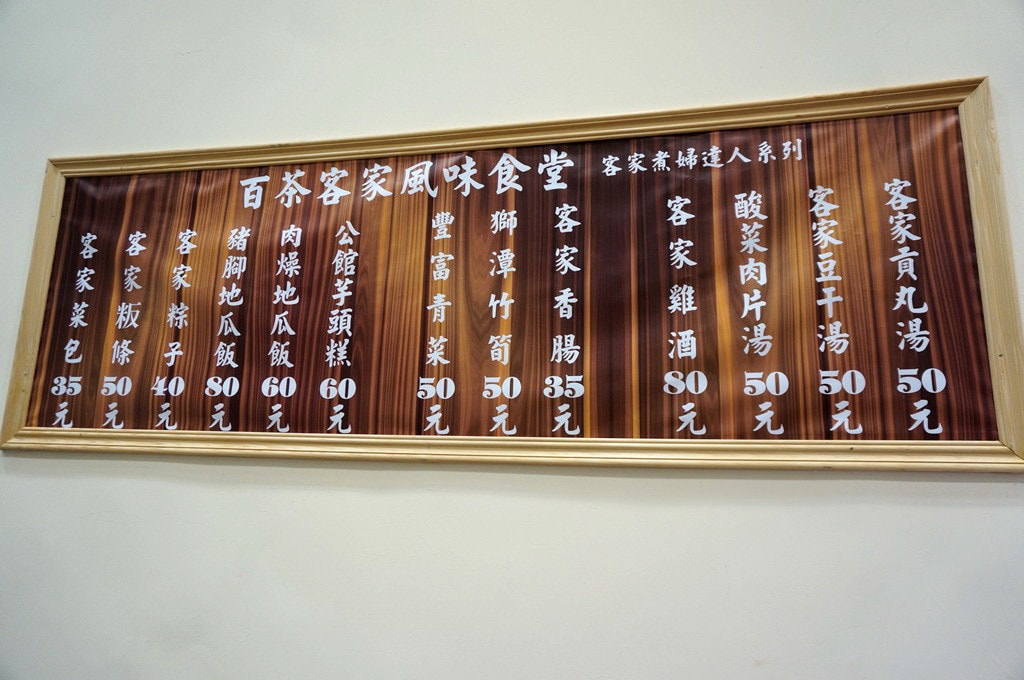 百茶客家風味食堂
客家煮婦達人系列
客家菜包35元
客家粄條50元
客家粽子40元
豬腳地瓜飯80元
肉燥地瓜飯60元
公館芋頭糕60元
豐富青菜50元
獅潭竹筍50元
客家香腸35元
客家雞酒80元
酸菜肉片湯50元
客家豆干湯50元
客家貢丸湯50元